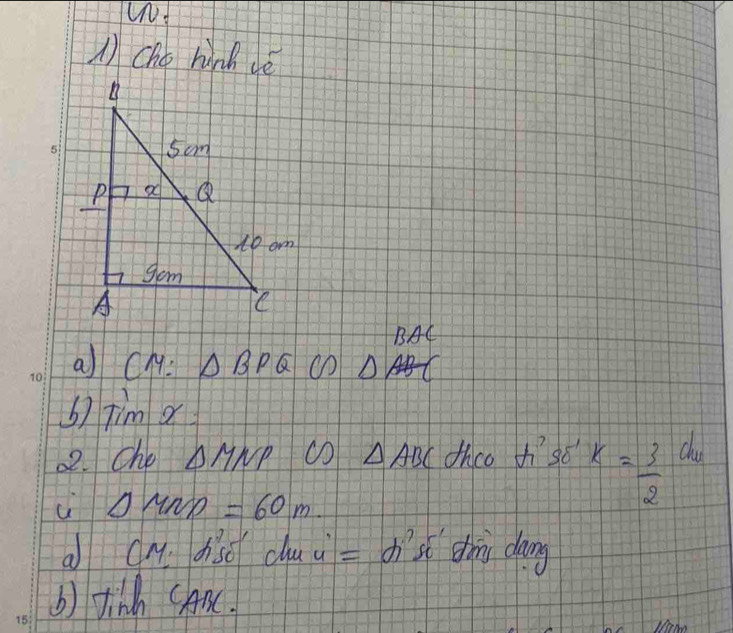 1) Cho hình vẽ
B
5cm
P x Q
10 cm
9cm
A C
BAC
a) CM: Δ BPQ ∽ Δ ABC
b) Tìm x.
2. Cho ΔMNP ∽ ΔABC theo tỉ số K = 3/2 chu
vi ΔMNP = 60m.
a) CM: tỉ số chu vi = tỉ số đồng dạng
b) Tính CABC.